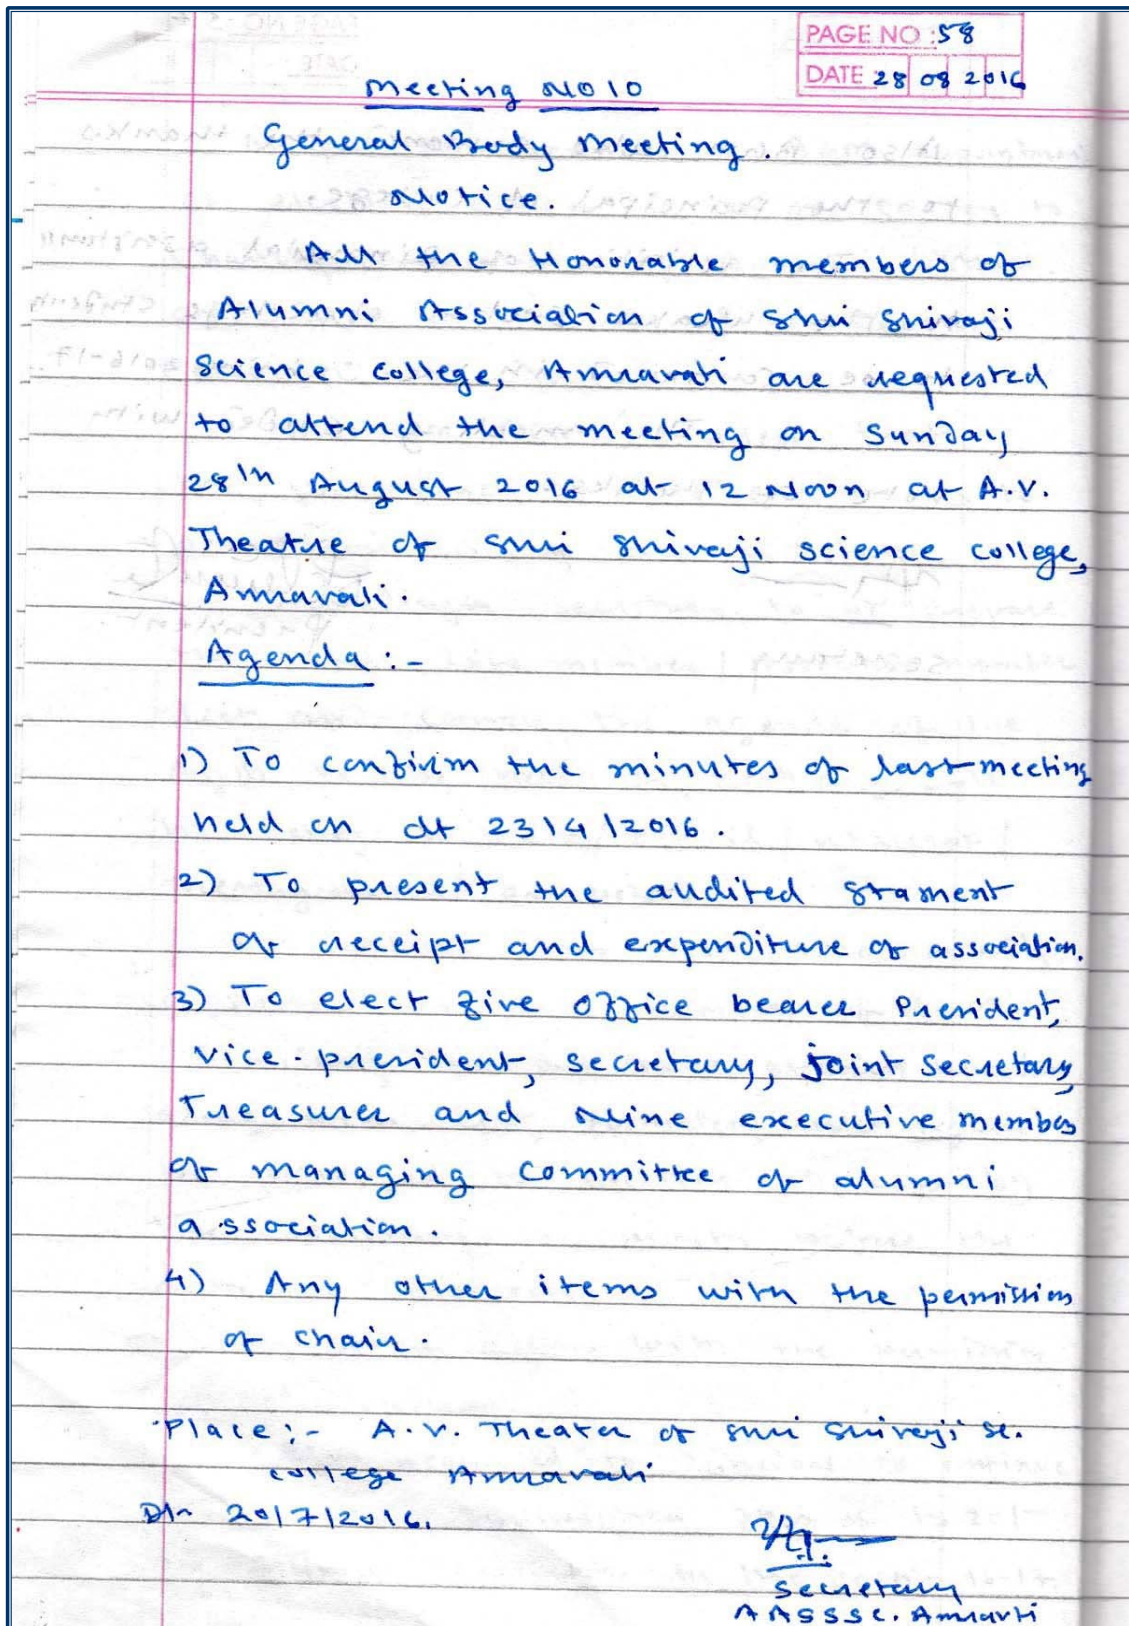 PAGE NO : 58
DATE 28 08 2016
Meeting NO 10
General Body Meeting.
Notice.
All the Honorable members of
Alumni Association of Shri Shivaji
Science College, Amravati are requested
to attend the meeting on Sunday
28th August 2016 at 12 Noon at A.V.
Theatre of Shri Shivaji science college,
Amravati.
Agenda :-
1) To confirm the minutes of last meeting
held on dt 23/4/2016.
2) To present the audited stament
of receipt and expenditure of association.
3) To elect five office bearer President,
Vice-president, secretary, joint secretary,
Treasurer and Nine executive members
of managing committee of alumni
association.
4) Any other items with the permission
of chair.
Place:- A.V. Theater of Shri Shivaji Sc.
college Amravati
Dt- 20/7/2016.
Secretary
AASSSC. Amravti